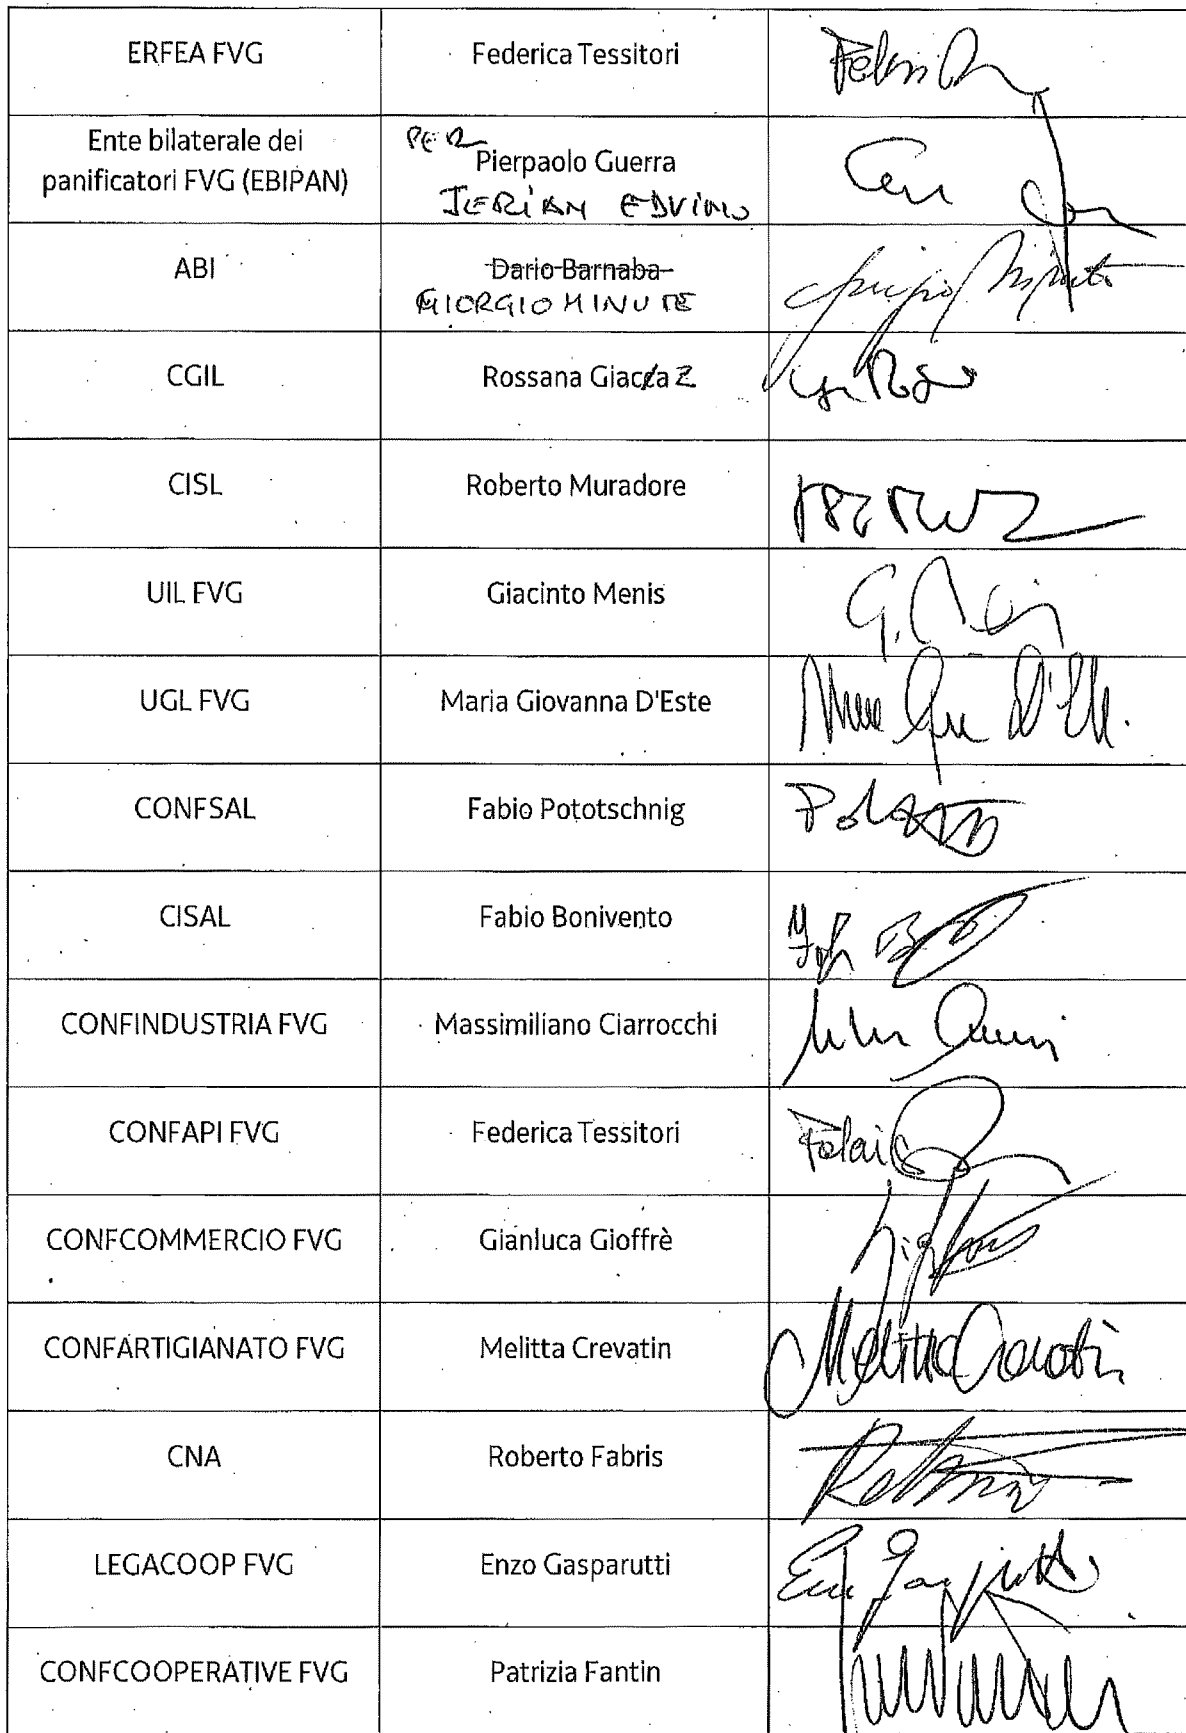 ERFEA FVG
Federica Tessitori
Ente bilaterale dei
panificatori FVG (EBIPAN)
PER
Pierpaolo Guerra
JERIAN EDVINO
ABI
Dario Barnaba
GIORGIO MINUTE
CGIL
Rossana Giacaz
CISL
Roberto Muradore
UIL FVG
Giacinto Menis
G.
UGL FVG
Maria Giovanna D'Este
CONFSAL
Fabio Pototschnig
CISAL
Fabio Bonivento
CONFINDUSTRIA FVG
Massimiliano Ciarrocchi
CONFAPI FVG
Federica Tessitori
CONFCOMMERCIO FVG
Gianluca Gioffrè
CONFARTIGIANATO FVG
Melitta Crevatin
Melitta Crevatin
CNA
Roberto Fabris
LEGACOOP FVG
Enzo Gasparutti
CONFCOOPERATIVE FVG
Patrizia Fantin